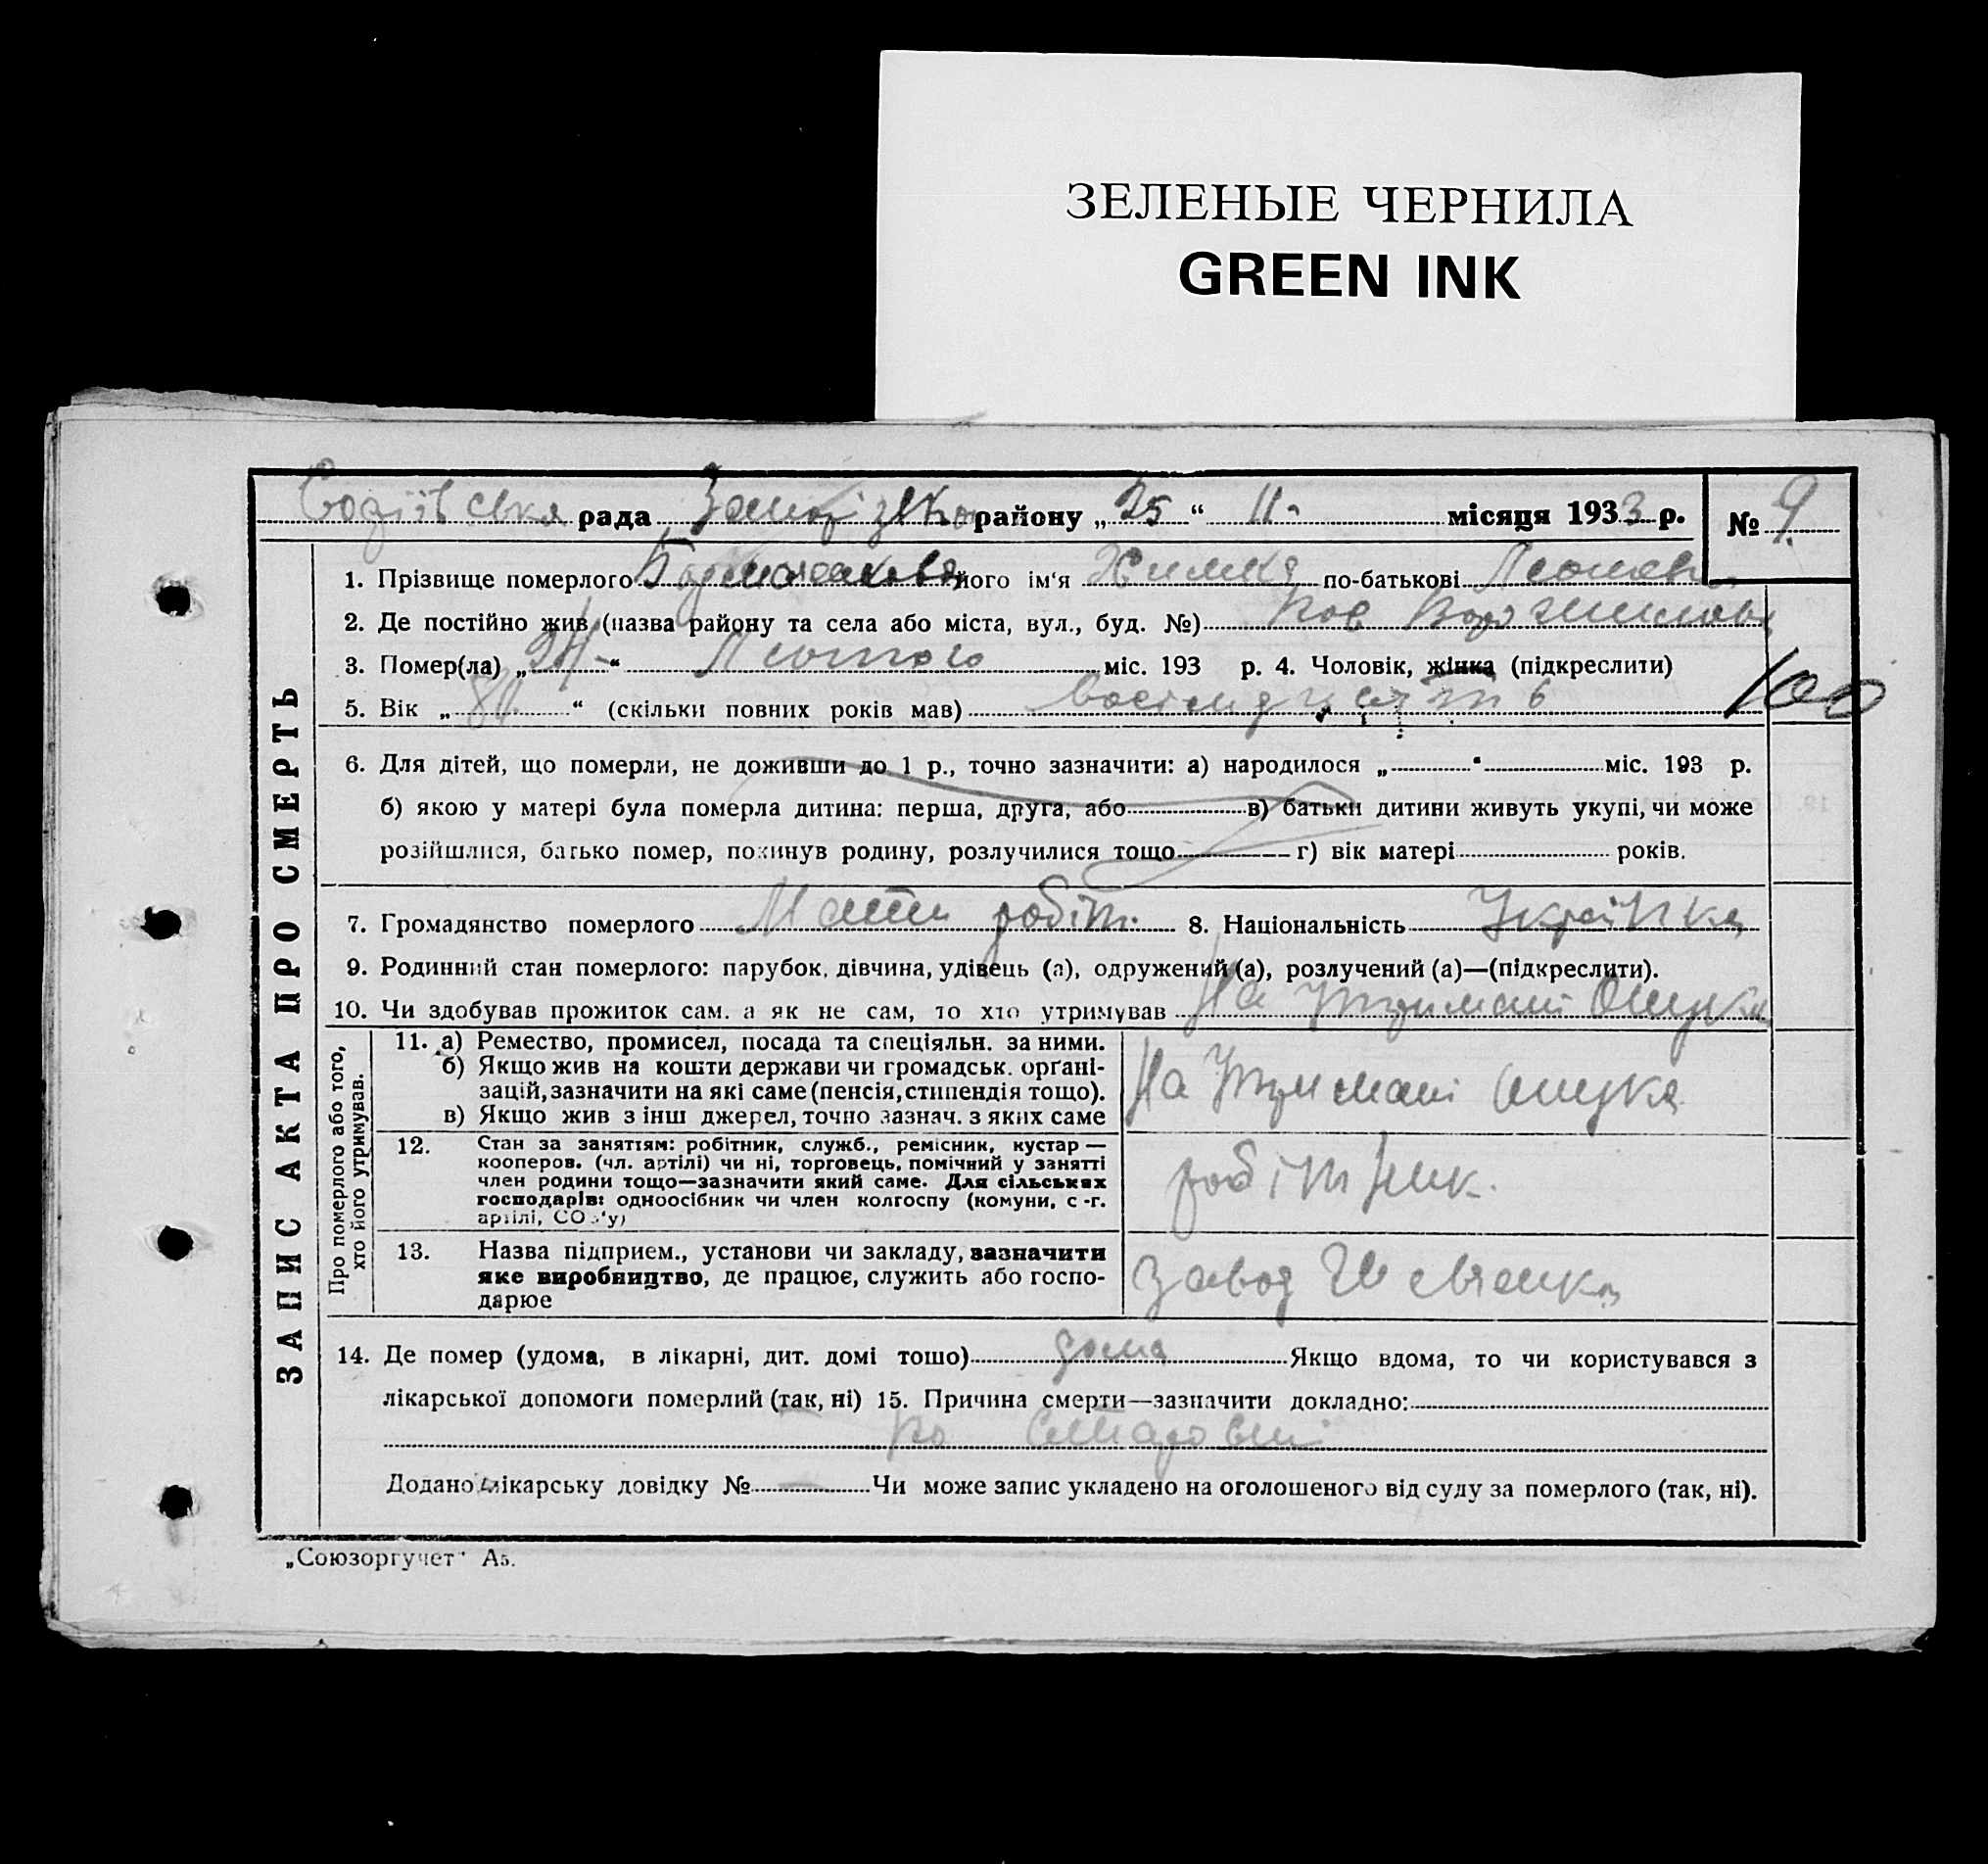 ЗЕЛЕНЫЕ ЧЕРНИЛА
GREEN INK
Софіївська рада району „ 25 “ II- місяця 1933 р. № 9
ЗАПИС АКТА ПРО СМЕРТЬ
1. Прізвище померлого його ім'я Химка по-батькові
2. Де постійно жив (назва району та села або міста, вул., буд. №) пос Ворошилова
3. Помер(ла) „ 24- “ Лютого міс. 193 р. 4. Чоловік, жінка (підкреслити)
5. Вік „ 80 “ (скільки повних років мав) восімдисять 100
6. Для дітей, що померли, не доживши до 1 р., точно зазначити: а) народилося „ “ міс. 193 р.
б) якою у матері була померла дитина: перша, друга, або в) батьки дитини живуть укупі, чи може
розійшлися, батько помер, покинув родину, розлучилися тощо г) вік матері років.
7. Громадянство померлого Мати робіт. 8. Національність Українка
9. Родинний стан померлого: парубок, дівчина, удівець (а), одружений (а), розлучений (а)—(підкреслити).
10. Чи здобував прожиток сам. а як не сам, то хто утримував На утримані Онука
Про померлого або того,
хто його утримував.
11. а) Ремество, промисел, посада та спеціяльн. за ними.
б) Якщо жив на кошти держави чи громадськ. орґані-
зацій, зазначити на які саме (пенсія, стипендія тощо).
в) Якщо жив з інш джерел, точно зазнач. з яких саме
На Утримані Онука
12. Стан за заняттям: робітник, служб., ремісник, кустар —
кооперов. (чл. артілі) чи ні, торговець, помічний у занятті
член родини тощо—зазначити який саме. Для сільських
господарів: одноосібник чи член колгоспу (комуни, с.-г.
артілі, СОЗ'у)
робітник.
13. Назва підприєм., установи чи закладу, зазначити
яке виробництво, де працює, служить або госпо-
дарює
завод
14. Де помер (удома, в лікарні, дит. домі тошо) дома Якщо вдома, то чи користувався з
лікарської допомоги померлий (так, ні) 15. Причина смерти—зазначити докладно:
по Старовні
Додано лікарську довідку № Чи може запис укладено на оголошеного від суду за померлого (так, ні).
„Союзоргучет“ А5.